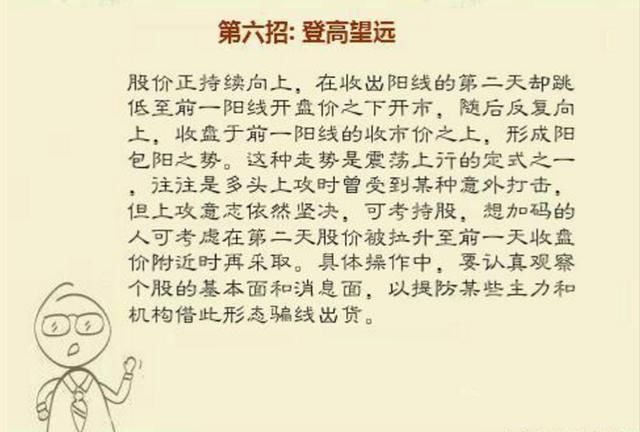 第六招: 登高望远
股价正持续向上，在收出阳线的第二天却跳
低至前一阳线开盘价之下开市，随后反复向
上，收盘于前一阳线的收市价之上，形成阳
包阳之势。这种走势是震荡上行的定式之一
，往往是多头上攻时曾受到某种意外打击，
但上攻意志依然坚决，可考持股，想加码的
人可考虑在第二天股价被拉升至前一天收盘
价附近时再采取。具体操作中，要认真观察
个股的基本面和消息面，以提防某些主力和
机构借此形态骗线出货。